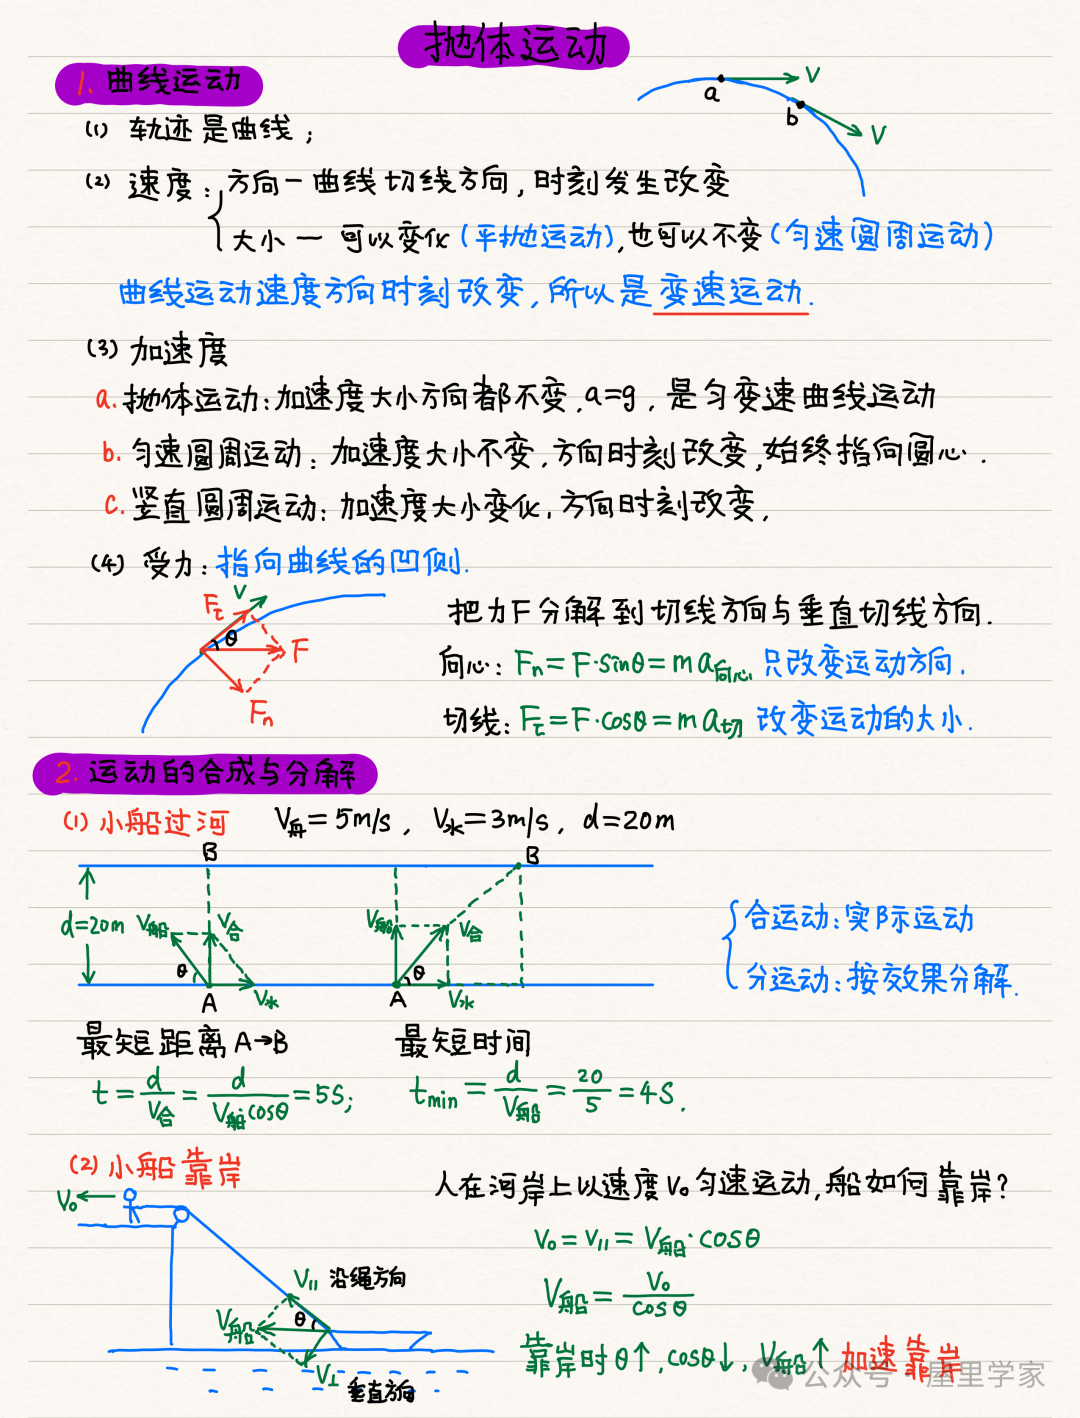 抛体运动
1. 曲线运动
a V
b V
(1) 轨迹是曲线；
(2) 速度：方向—曲线切线方向，时刻发生改变
大小—可以变化(平抛运动)，也可以不变(匀速圆周运动)
曲线运动速度方向时刻改变，所以是变速运动.
(3) 加速度
a. 抛体运动：加速度大小方向都不变，a=g，是匀变速曲线运动
b. 匀速圆周运动：加速度大小不变，方向时刻改变，始终指向圆心.
c. 竖直圆周运动：加速度大小变化，方向时刻改变，
(4) 受力：指向曲线的凹侧.
V
Fτ θ F
Fn
把力F分解到切线方向与垂直切线方向.
向心：Fn=F·sinθ=ma向心 只改变运动方向.
切线：Fτ=F·cosθ=ma切 改变运动的大小.
2. 运动的合成与分解
(1) 小船过河 V舟=5m/s, V水=3m/s, d=20m
B B
d=20m V船 V合 V船 V合
θ θ
A V水 A V水
合运动：实际运动
分运动：按效果分解.
最短距离A→B 最短时间
t=d/V合=d/V船cosθ=5S; tmin=d/V船=20/5=4S.
(2) 小船靠岸
人在河岸上以速度V₀匀速运动，船如何靠岸?
V₀
V₀=V∥=V船·cosθ
V∥ 沿绳方向
V船=V₀/cosθ
V船 θ
V⊥ 垂直方向
靠岸时θ↑, cosθ↓, V船↑ 加速靠岸
公众号·屋里学家